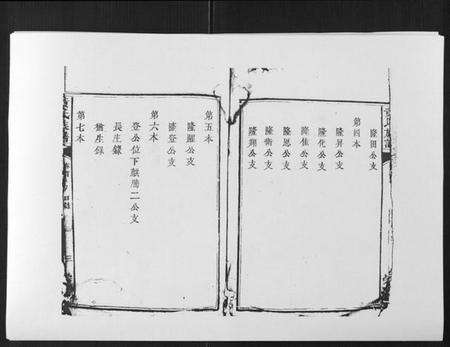 隆田公支
第四本
隆昇公支
隆化公支
隆佳公支
隆恩公支
隆衛公支
隆翔公支
第五本
隆羆公支
隆登公支
第六本
登公位下麒麟二公支
長庄錄
第七本